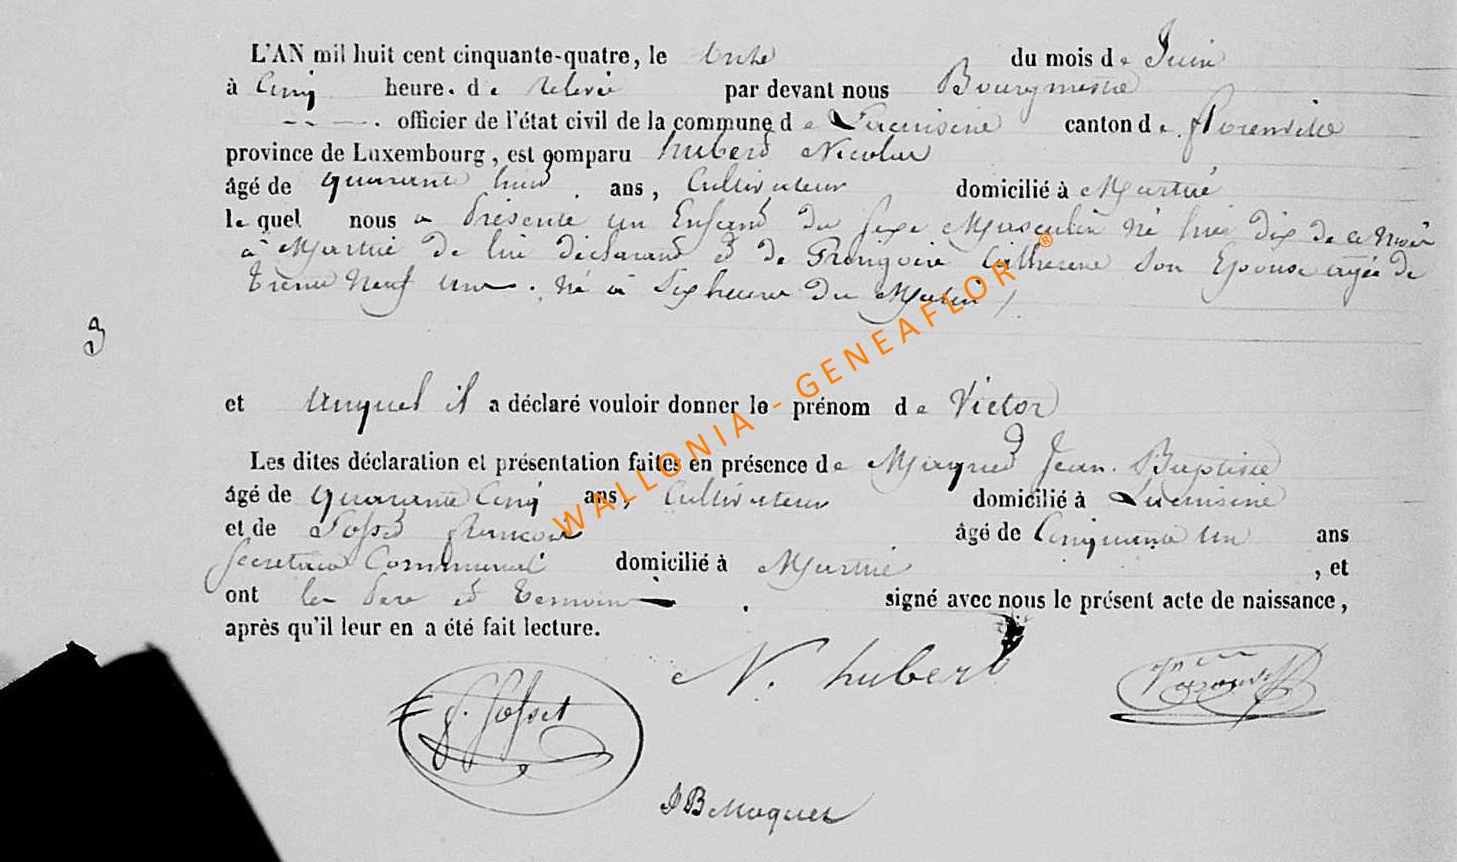 L'AN mil huit cent cinquante-quatre, le onze du mois de Juin
à Cinq heure. de relevée par devant nous Bourgmestre
officier de l'état civil de la commune de canton de florenville
province de Luxembourg, est comparu hubert Nicolas
âgé de quarante huit ans, Cultivateur domicilié à Martué
le quel nous a présenté un Enfant du sexe Masculin né hier dix de ce mois
à Martué de lui déclarant et de Catherine son Epouse agée de
trente Neuf ans. né à six heures du Matin
3
et Auquel il a déclaré vouloir donner le prénom de Victor
Les dites déclaration et présentation faites en présence de Maquet Jean. Baptiste
âgé de quarante Cinq ans, Cultivateur domicilié à
et de Fosset françois âgé de Cinquante un ans
secretaire Communal domicilié à Martué , et
ont les père et temoins signé avec nous le présent acte de naissance,
après qu'il leur en a été fait lecture.
N. hubert
f. Fosset
JB Maquet
WALLONIA - GENEAFLOR ®